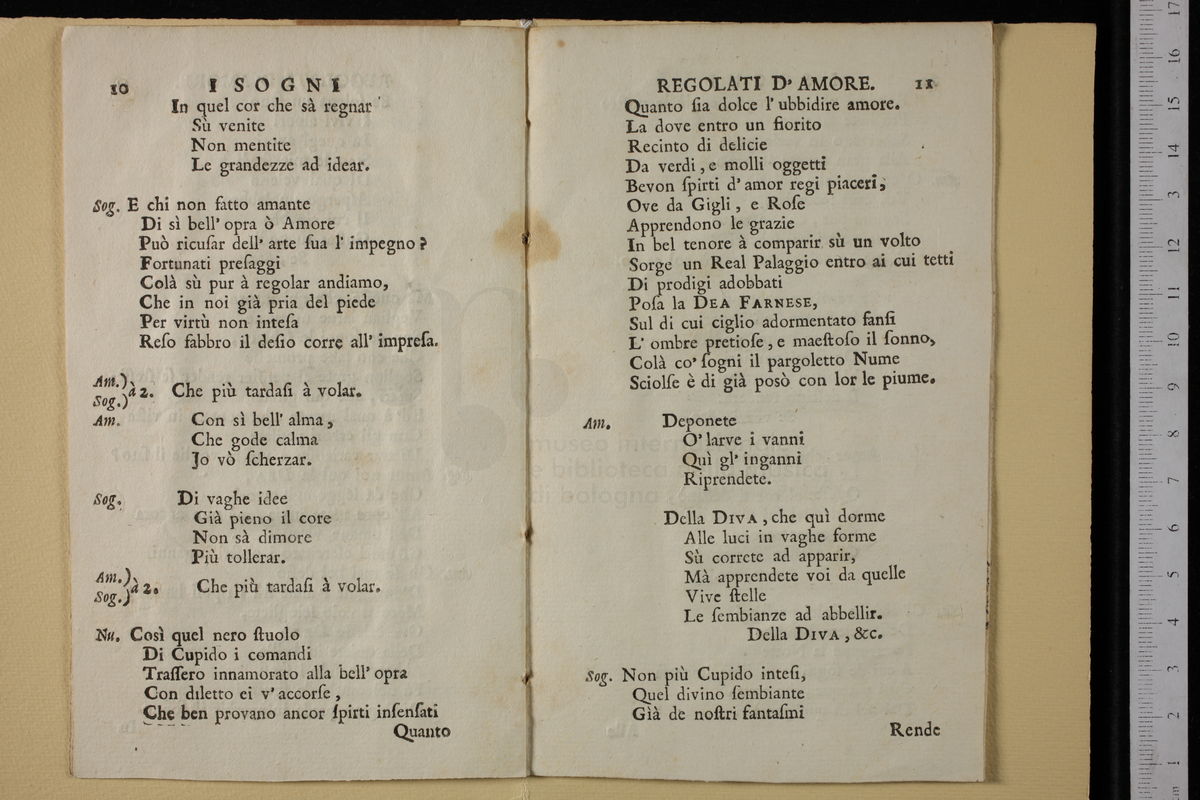 10 I SOGNI
In quel cor che sà regnar
Sù venite
Non mentite
Le grandezze ad idear.
Sog. E chi non fatto amante
Di sì bell' opra ò Amore
Può ricuſar dell' arte ſua l' impegno?
Fortunati preſaggi
Colà sù pur à regolar andiamo,
Che in noi già pria del piede
Per virtù non inteſa
Reſo fabbro il deſio corre all' impreſa.
Am.)
Sog.) à 2. Che più tardaſi à volar.
Am. Con sì bell' alma,
Che gode calma
Jo vò ſcherzar.
Sog. Di vaghe idee
Già pieno il core
Non sà dimore
Più tollerar.
Am.)
Sog.) à 2. Che più tardaſi à volar.
Nu. Così quel nero ſtuolo
Di Cupido i comandi
Traſſero innamorato alla bell' opra
Con diletto ei v' accorſe,
Che ben provano ancor ſpirti inſenſati
Quanto
REGOLATI D' AMORE. 11
Quanto ſia dolce l' ubbidire amore.
La dove entro un fiorito
Recinto di delicie
Da verdi, e molli oggetti
Bevon ſpirti d' amor regi piaceri,
Ove da Gigli, e Roſe
Apprendono le grazie
In bel tenore à comparir sù un volto
Sorge un Real Palaggio entro ai cui tetti
Di prodigi adobbati
Poſa la DEA FARNESE,
Sul di cui ciglio adormentato fanſi
L' ombre pretioſe, e maeſtoſo il ſonno,
Colà co' ſogni il pargoletto Nume
Sciolſe è di già posò con lor le piume.
Am. Deponete
O' larve i vanni
Quì gl' inganni
Riprendete.
Della DIVA, che quì dorme
Alle luci in vaghe forme
Sù correte ad apparir,
Mà apprendete voi da quelle
Vive ſtelle
Le ſembianze ad abbellir.
Della DIVA, &c.
Sog. Non più Cupido inteſi,
Quel divino ſembiante
Già de noſtri fantaſmi
Rende